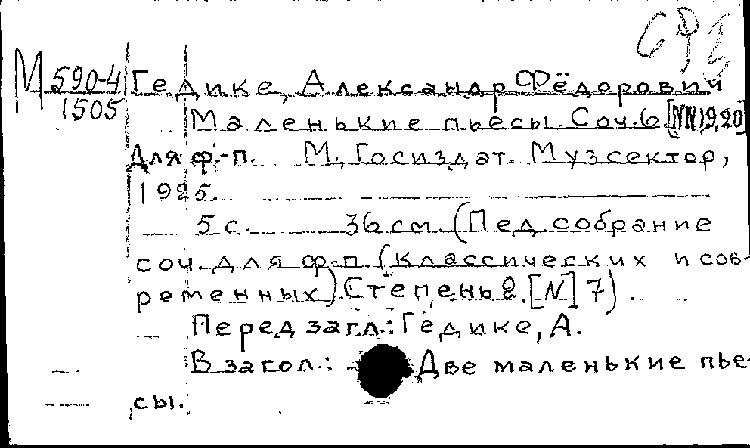 М 590-4
1505
Гедике, Александр Фёдорович
Маленькие пьесы. Соч. 6 [NN] 19, 20]
Для ф.-п. М., Госиздат. Музсектор,
1925.
5 с. 36 см. (Пед. собрание
соч. для ф-п. (классических и сов-
ременных) Степень 2. [N] 7).
Перед загл.: Гедике, А.
В загол.: Две маленькие пье-
сы.